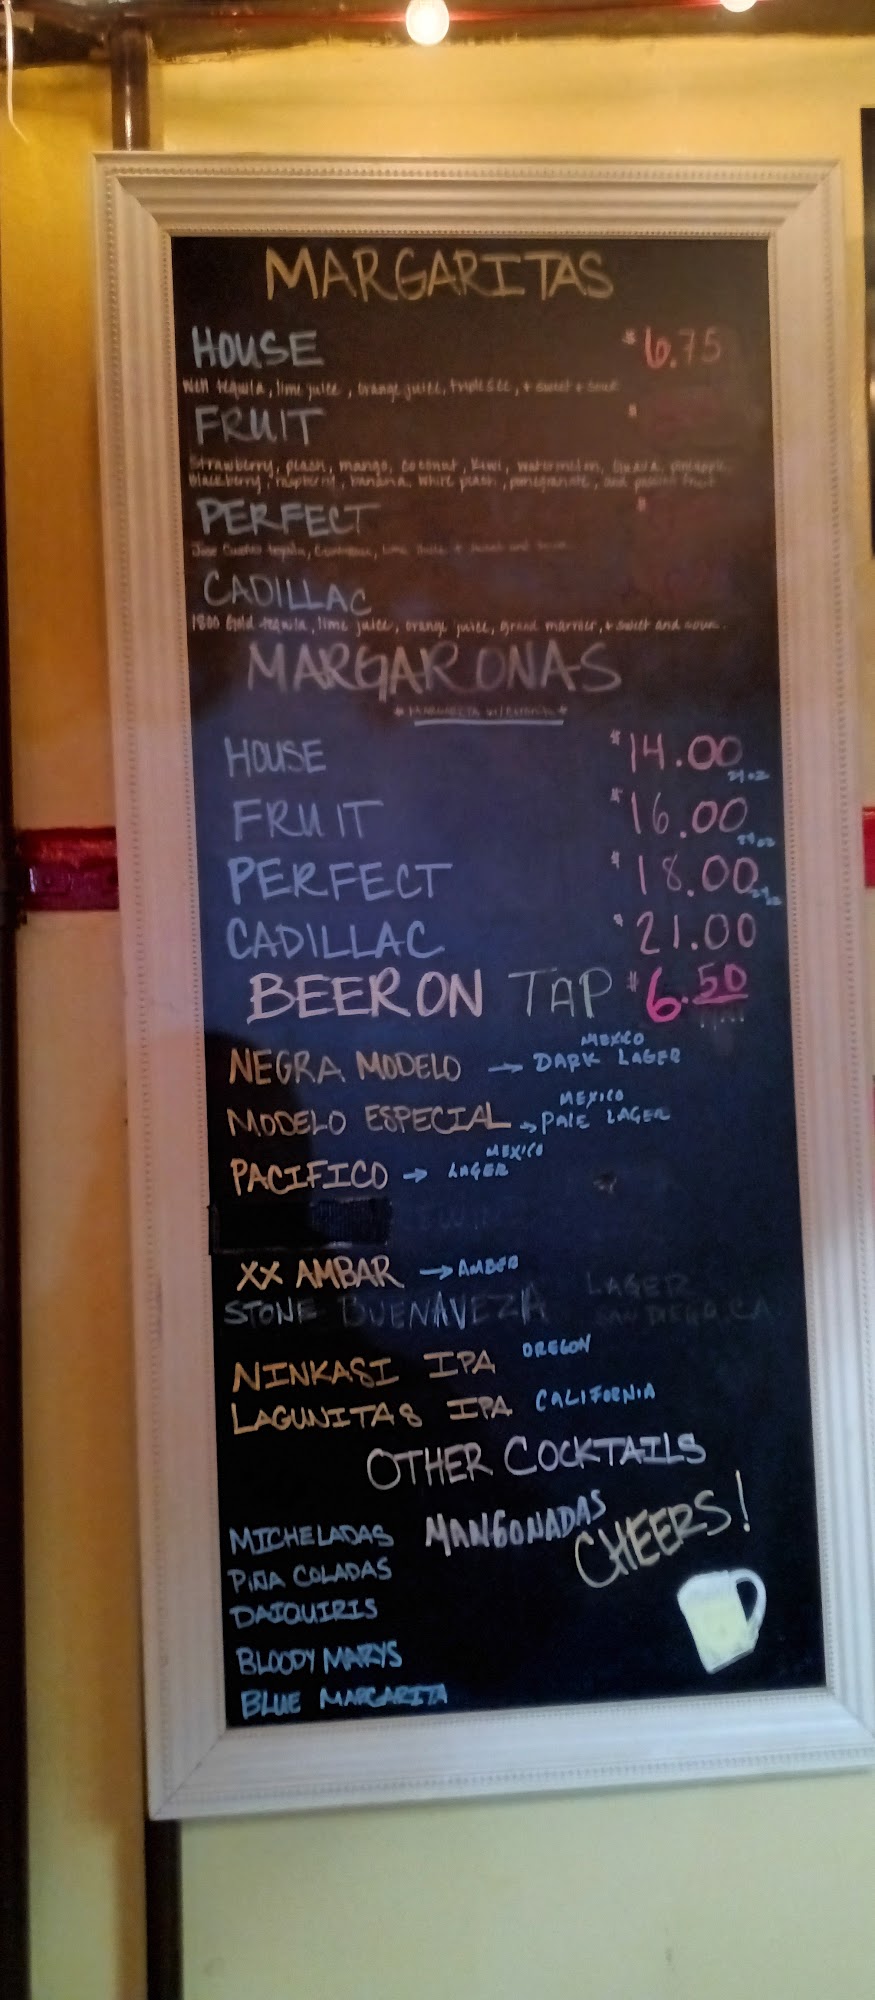 MARGARITAS
HOUSE $6.75
Well tequila, lime juice, orange juice, triple sec, + sweet + sour
FRUIT $
Strawberry, peach, mango, coconut, kiwi, watermelon, guava, pineapple,
blackberry, raspberry, banana, white peach, pomegranate, and passion fruit
PERFECT $
Jose Cuervo tequila, Cointreau, lime juice + sweet and sour
CADILLAC
1800 Gold tequila, lime juice, orange juice, grand marnier, + sweet and sour.
MARGARONAS
* MARGARITA w/ *
HOUSE $14.00
FRUIT $16.00
PERFECT $18.00
CADILLAC $21.00
BEER ON TAP $6.50
NEGRA MODELO → MEXICO DARK LAGER
MODELO ESPECIAL → MEXICO PALE LAGER
PACIFICO → MEXICO LAGER
XX AMBAR → AMBER
STONE BUENAVEZA LAGER SAN DIEGO, CA
NINKASI IPA OREGON
LAGUNITAS IPA CALIFORNIA
OTHER COCKTAILS
MICHELADAS MANGONADAS
CHEERS!
PIÑA COLADAS
DAIQUIRIS
BLOODY MARYS
BLUE MARGARITA